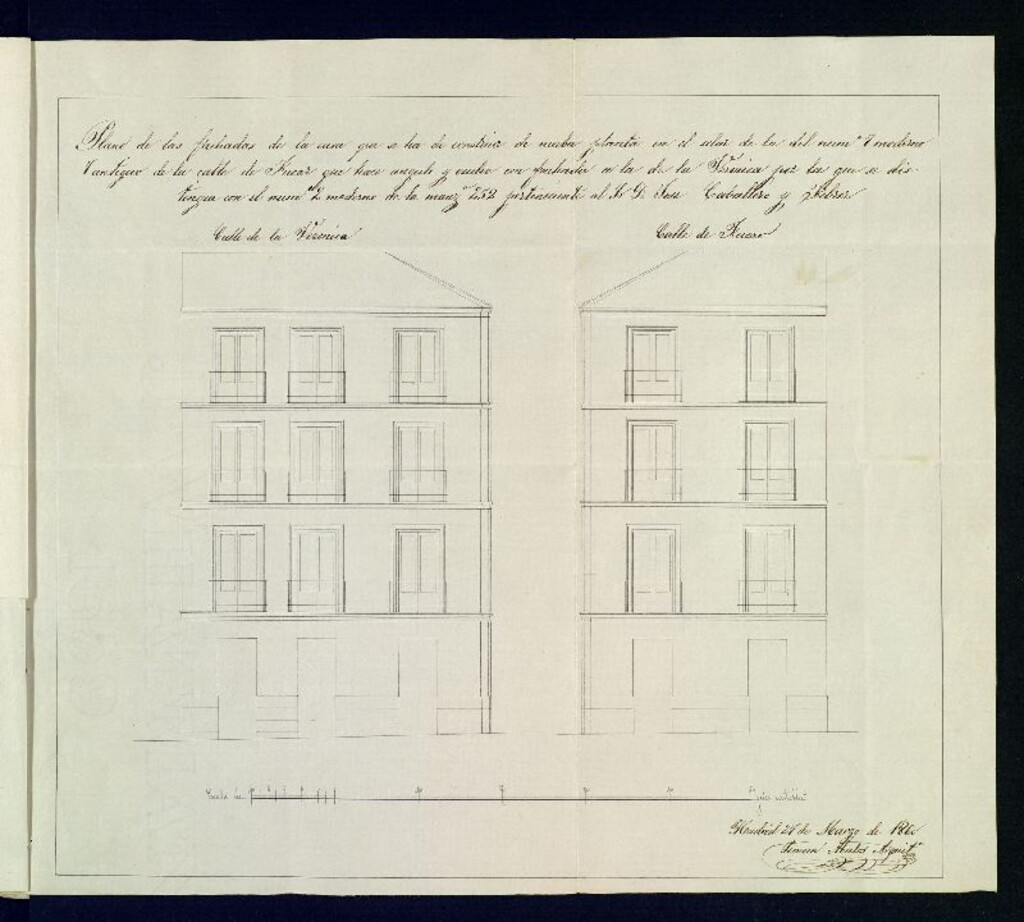 Plano de las fachadas de la casa que se ha de construir de nueba planta en el solar de la del num.º 7 moderno
7 antiguo de la calle de Fucar que hace angulo y vuelve con fachada a la de la Verónica por la que se dis-
tingue con el num.º 2 moderno de la manz.ª 252 perteneciente al Sr. D. Jose Caballero y
Calle de la Verónica
Calle de Fucar
Escala de
Madrid de Marzo de
Arquit.º